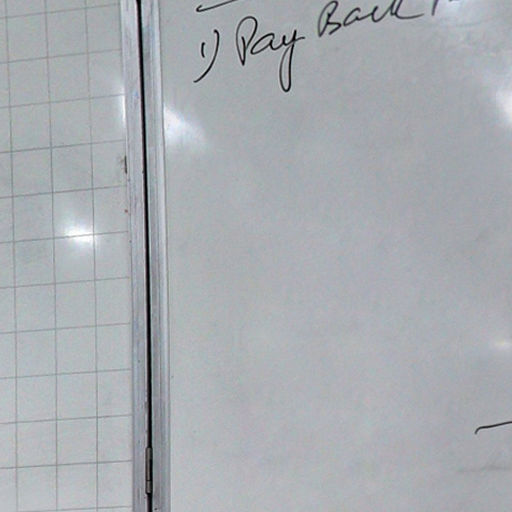 1) Pay Back